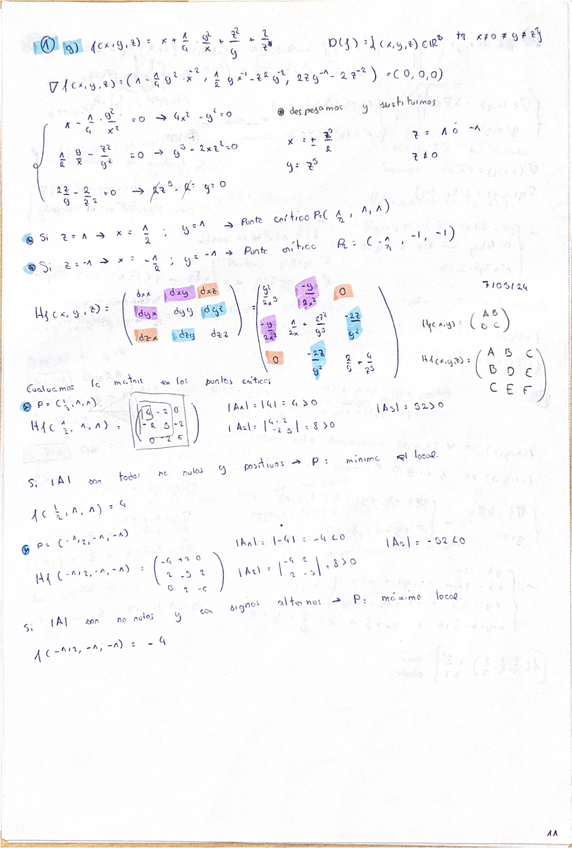 ① g) f(x,y,z) = x + 1/4 · y²/x + z²/y + 2/z D(f) = {(x,y,z) ∈ ℝ³ tq x≠0 ≠ y ≠ z}
∇f(x,y,z) = (1 - 1/4 y² · x⁻², 1/2 y x⁻¹ - z² y⁻², 2z y⁻¹ - 2 z⁻²) = (0,0,0)
• despejamos y sustituimos
1 - 1/4 · y²/x² = 0 → 4x² - y² = 0
x = ± z³/2 z = 1 ó -1
1/2 y/x - z²/y² = 0 → y³ - 2xz² = 0
y = z³ z ≠ 0
2z/y - 2/z² = 0 → 2z³ - 2 · y = 0
• Si z = 1 → x = 1/2 ; y = 1 → Punto crítico P₁(1/2, 1, 1)
• Si z = -1 → x = -1/2 ; y = -1 → Punto crítico P₂ = (-1/2, -1, -1)
7/03/24
Hf(x,y,z) = (dxx dxy dxz
dyx dyy dyz
dzx dzy dzz)
= (y²/2x³ -y/2x² 0
-y/2x² 1/2x + 2z²/y³ -2z/y²
0 -2z/y² 2/y + 4/z³)
Hf(x,y) = (A B
B C)
Hf(x,y,z) = (A B C
B D E
C E F)
Evaluamos la matriz en los puntos críticos
• P = (1/2, 1, 1)
Hf(1/2, 1, 1) = (4 -2 0
-2 3 -2
0 -2 6)
|A₁| = |4| = 4 > 0 |A₃| = 32 > 0
|A₂| = |4 -2
-2 3| = 8 > 0
Si |A| son todos no nulos y positivos → P = mínimo local.
f(1/2, 1, 1) = 4
• P = (-1/2, -1, -1)
Hf(-1/2, -1, -1) = (-4 +2 0
2 -3 2
0 2 -6)
|A₁| = |-4| = -4 < 0 |A₃| = -32 < 0
|A₂| = |-4 2
2 -3| = 8 > 0
Si |A| son no nulos y con signos alternos → P = máximo local
f(-1/2, -1, -1) = -4
11